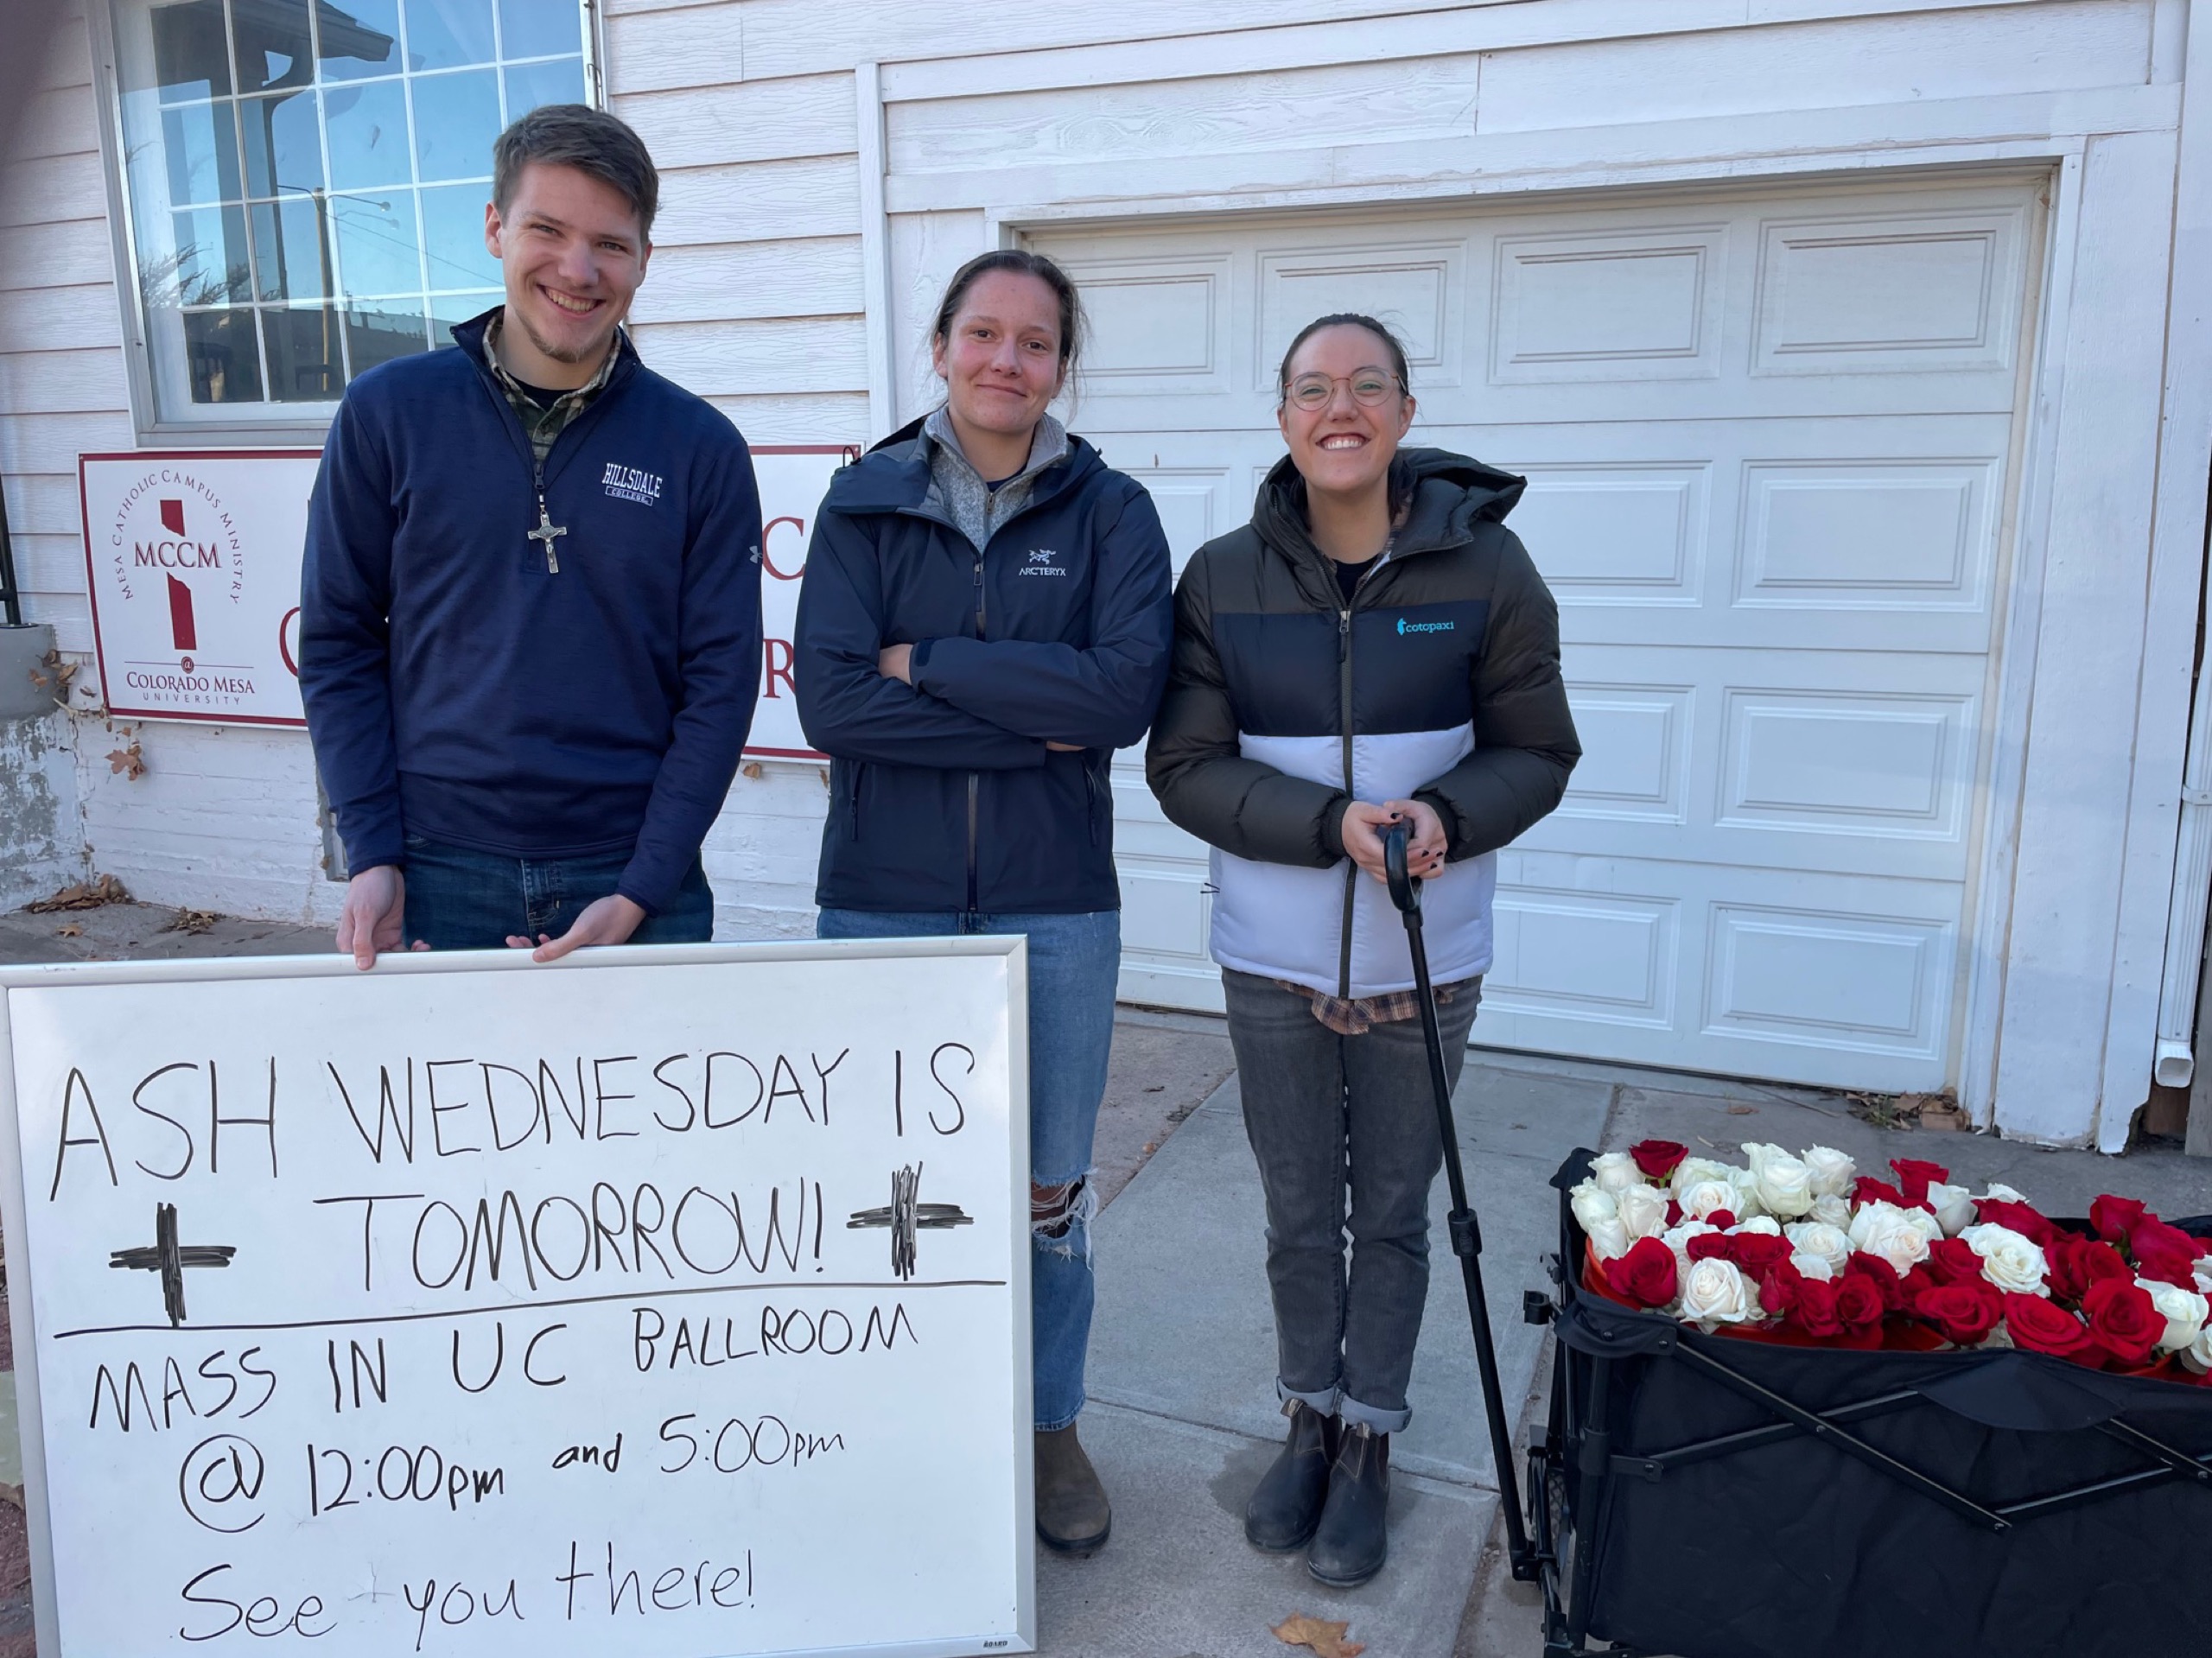 MESA CATHOLIC CAMPUS MINISTRY
MCCM
@
COLORADO MESA
UNIVERSITY
HILLSDALE
COLLEGE
ARC'TERYX
cotopaxi
ASH WEDNESDAY IS
TOMORROW!
MASS IN UC BALLROOM
@ 12:00pm and 5:00pm
See you there!